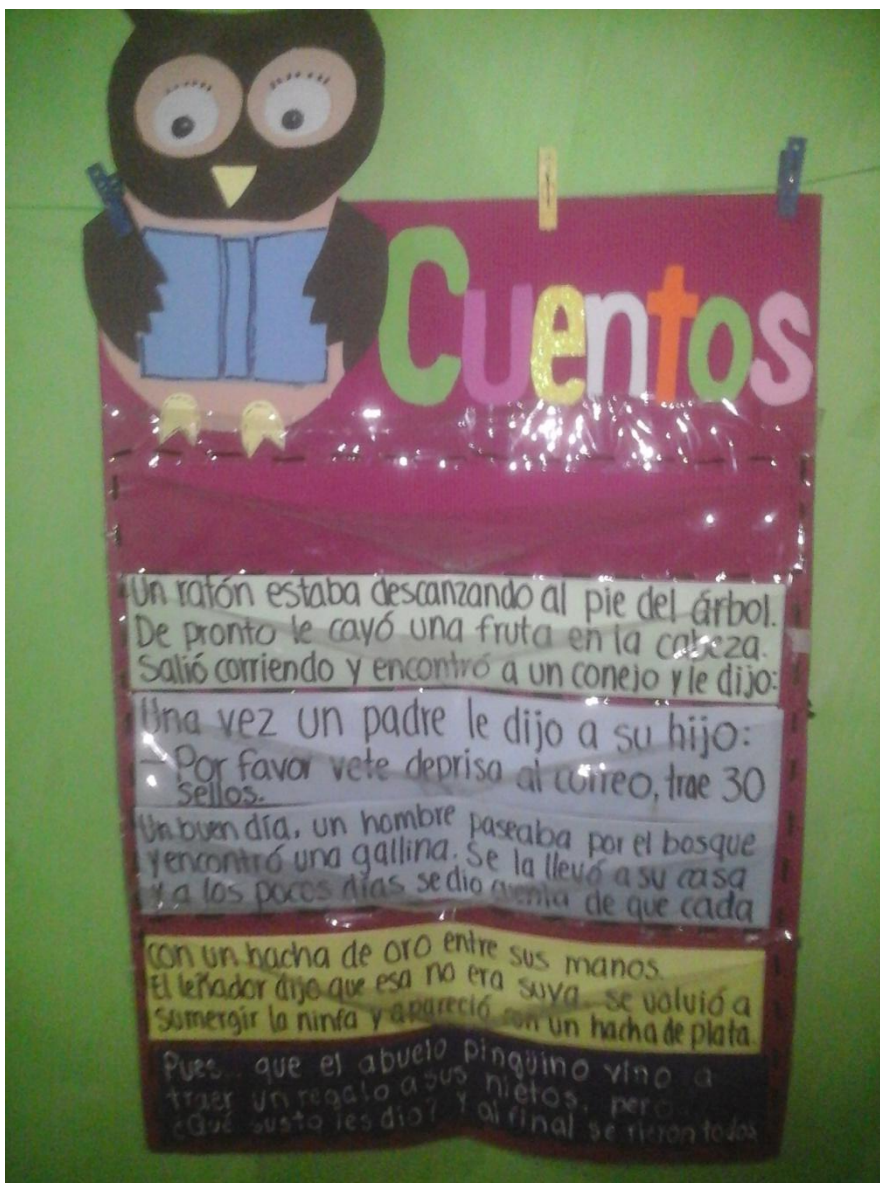 Cuentos
Un ratón estaba descanzando al pie del árbol.
De pronto le cayó una fruta en la cabeza.
Salió corriendo y encontró a un conejo y le dijo:
Una vez un padre le dijo a su hijo:
- Por favor vete deprisa al correo, trae 30
sellos.
Un buen día, un hombre paseaba por el bosque
y encontró una gallina. Se la llevó a su casa
y a los pocos días se dio cuenta de que cada
con un hacha de oro entre sus manos.
El leñador dijo que esa no era suya. Se volvió a
sumergir la ninfa y apareció con un hacha de plata.
Pues.. que el abuelo pingüino vino a
traer un regalo a sus nietos, pero
¿Qué susto les dio? Y al final se rieron todos